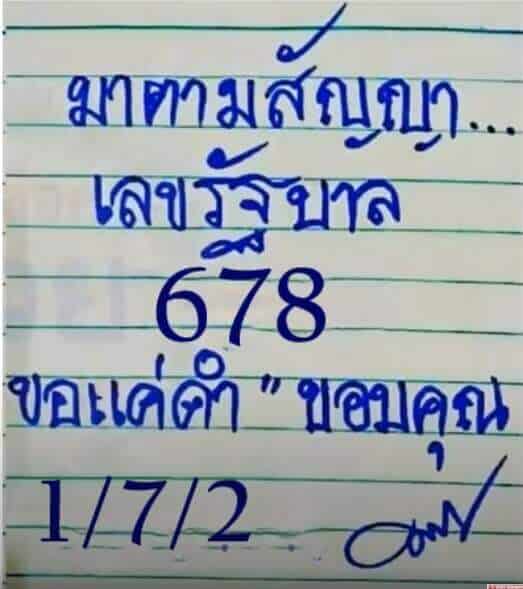 มาตามสัญญา...
เลขรัฐบาล
678
ขอแค่คำ "ขอบคุณ
1/7/2